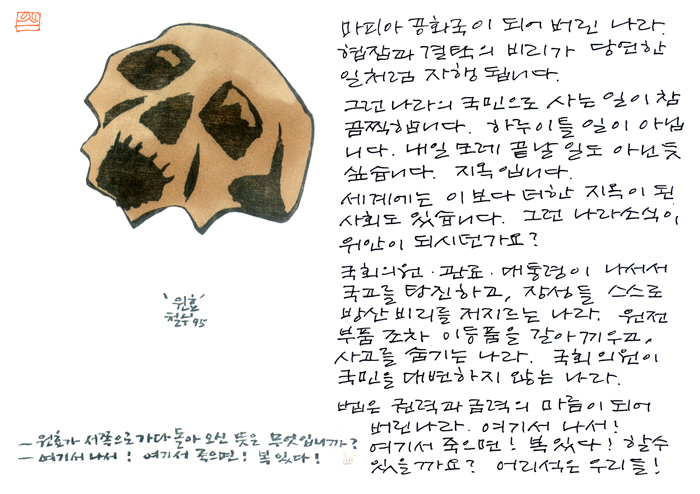 '원효'
철수 95
— 원효가 서쪽으로 가다 돌아 오신 뜻은 무엇입니까?
— 여기서 나서! 여기서 죽으면! 복 있다!
마피아 공화국이 되어 버린 나라.
협잡과 결탁의 비리가 당연한
일처럼 자행 됩니다.
그런 나라의 국민으로 사는 일이 참
끔찍합니다. 하루이틀 일이 아닙
니다. 내일 모레 끝날 일도 아닌 듯
싶습니다. 지옥입니다.
세계에는 이 보다 더한 지옥이 된
사회도 있습니다. 그런 나라 소식이
위안이 되시던가요?
국회의원·관료·대통령이 나서서
국고를 탕진하고, 장성들 스스로
방산비리를 저지르는 나라. 원전
부품 조차 이등품을 갈아끼우고,
사고를 숨기는 나라. 국회의원이
국민을 대변하지 않는 나라.
법은 권력과 금력의 마름이 되어
버린나라. 여기서 나서!
여기서 죽으면! 복 있다! 할 수
있을까요? 어리석은 우리들!